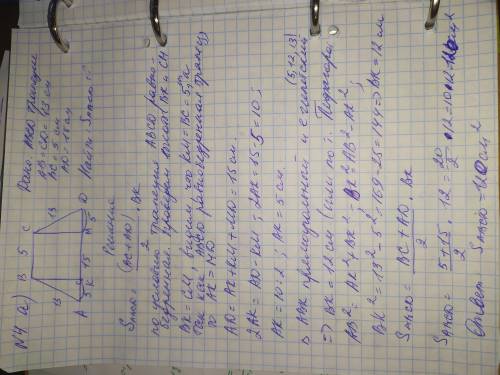 N4 (а)
B 5 C
13 13
A 5 K 15 M 5 D
Дано: ABCD трапеция
AB = CD = 13 см
BC = 5 см
AD = 15 см
Найти: SABCD - ?
Решение
SABCD = (BC + AD) / 2 · BK
по условию трапеция ABCD равно-
бедренная, проведём высоты BK = CM
BK = CM, видим, что KM = BC = 5, а
так как ABCD равнобедренная трапеция
то AK = MD
AD = AK + KM + MD = 15 см.
2AK = AD - KM; 2AK = 15 - 5 = 10;
AK = 10 : 2; AK = 5 см.
△ ABK прямоугольный и египетский (5, 12, 13)
=> BK = 12 см (или по т. Пифагора
AB² = AK² + BK²; BK² = AB² - AK²;
BK² = 13² - 5² = 169 - 25 = 144 => BK = 12 см
SABCD = BC + AD / 2 · BK
SABCD = 5 + 15 / 2 · 12 = 20 / 2 · 12 = 10 · 12 = 120 см²
Ответ: SABCD = 120 см²